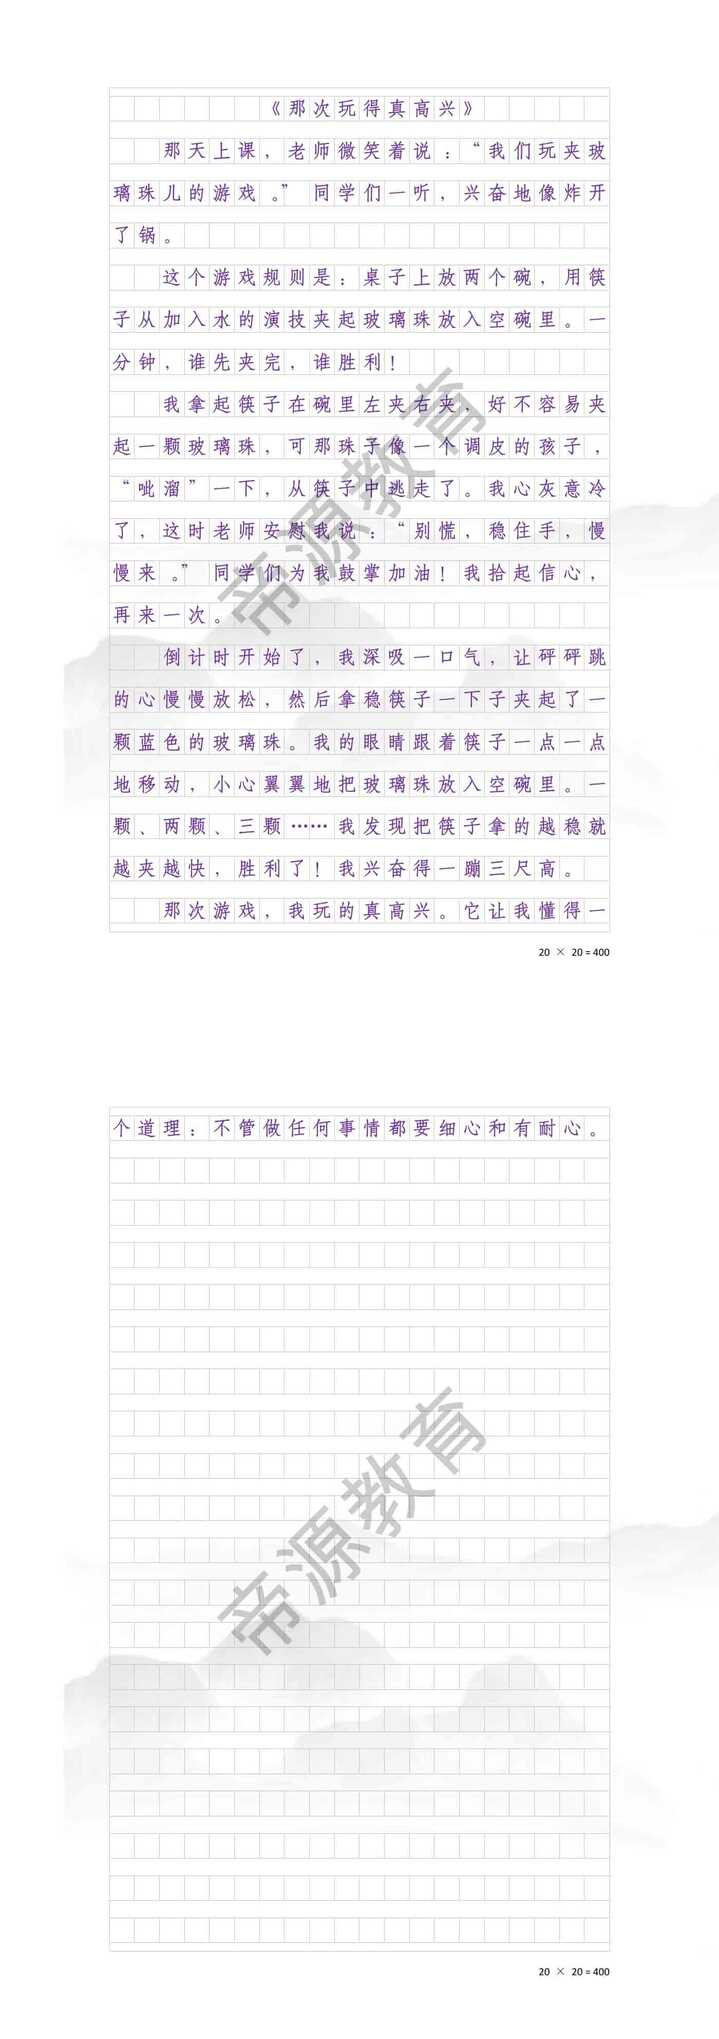 《那次玩得真高兴》
那天上课，老师微笑着说：“我们玩夹玻
璃珠儿的游戏。” 同学们一听，兴奋地像炸开
了锅。
这个游戏规则是：桌子上放两个碗，用筷
子从加入水的演技夹起玻璃珠放入空碗里。一
分钟，谁先夹完，谁胜利！
我拿起筷子在碗里左夹右夹，好不容易夹
起一颗玻璃珠，可那珠子像一个调皮的孩子，
“呲溜”一下，从筷子中逃走了。我心灰意冷
了，这时老师安慰我说：“别慌，稳住手，慢
慢来。” 同学们为我鼓掌加油！我拾起信心，
再来一次。
倒计时开始了，我深吸一口气，让砰砰跳
的心慢慢放松，然后拿稳筷子一下子夹起了一
颗蓝色的玻璃珠。我的眼睛跟着筷子一点一点
地移动，小心翼翼地把玻璃珠放入空碗里。一
颗、两颗、三颗……我发现把筷子拿的越稳就
越夹越快，胜利了！我兴奋得一蹦三尺高。
那次游戏，我玩的真高兴。它让我懂得一
20 × 20＝400
个道理：不管做任何事情都要细心和有耐心。
20 × 20＝400
帝源教育
帝源教育